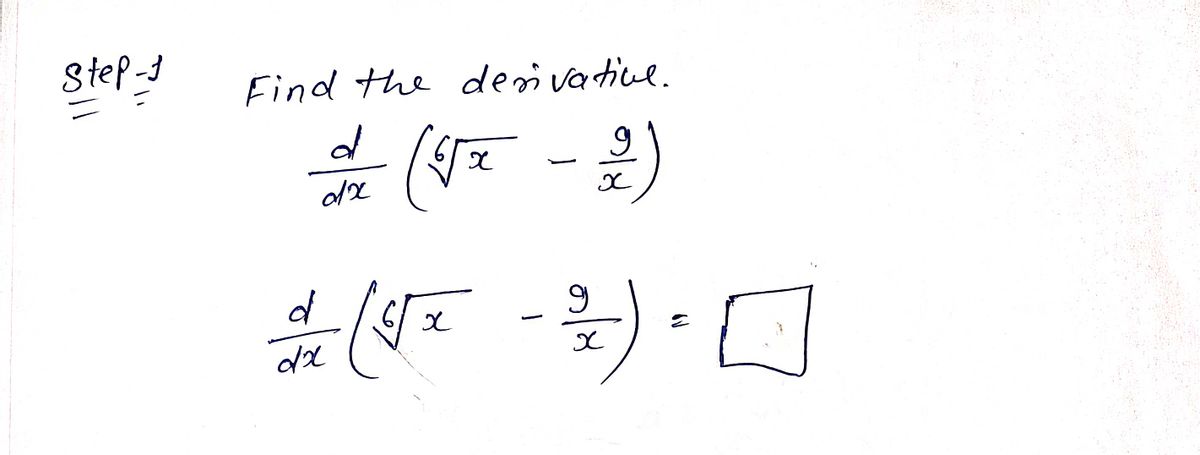 Step-1 Find the derivative.
d/dx (⁶√x - 9/x)
d/dx (⁶√x - 9/x) = □